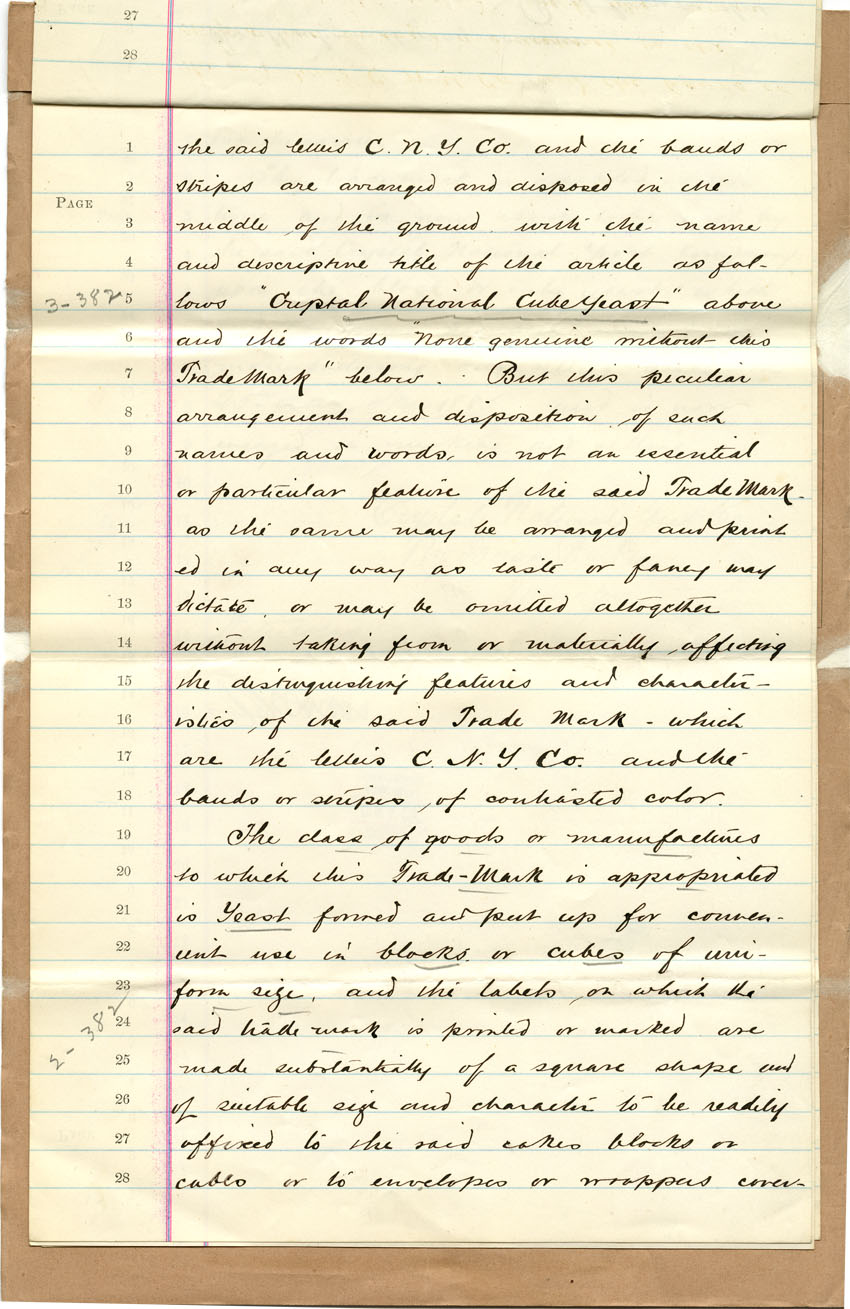 27
28
1 the said letters C. N. Y. Co. and the bands or
2 stripes are arranged and disposed in the
PAGE
3 middle of the ground with the name
4 and descriptive title of the article as fol-
3-382 5 lows "Crystal National Cube Yeast" above
6 and the words "None genuine without this
7 Trade Mark" below. But this peculiar
8 arrangement and disposition of such
9 names and words, is not an essential
10 or particular feature of the said Trade Mark -
11 as the same may be arranged and print
12 ed in any way as taste or fancy may
13 dictate, or may be omitted altogether
14 without taking from or materially affecting
15 the distinguishing features and character-
16 istics of the said Trade Mark - which
17 are the letters C. N. Y. Co. and the
18 bands or stripes of contrasted color.
19 The class of goods or manufactures
20 to which this Trade-Mark is appropriated
21 is Yeast formed and put up for conven-
22 ient use in blocks or cubes of uni-
23 form size, and the labels on which the
2-382 24 said trade-mark is printed or marked are
25 made substantially of a square shape and
26 of suitable size and character to be readily
27 affixed to the said cakes blocks or
28 cubes or to envelopes or wrappers cover-